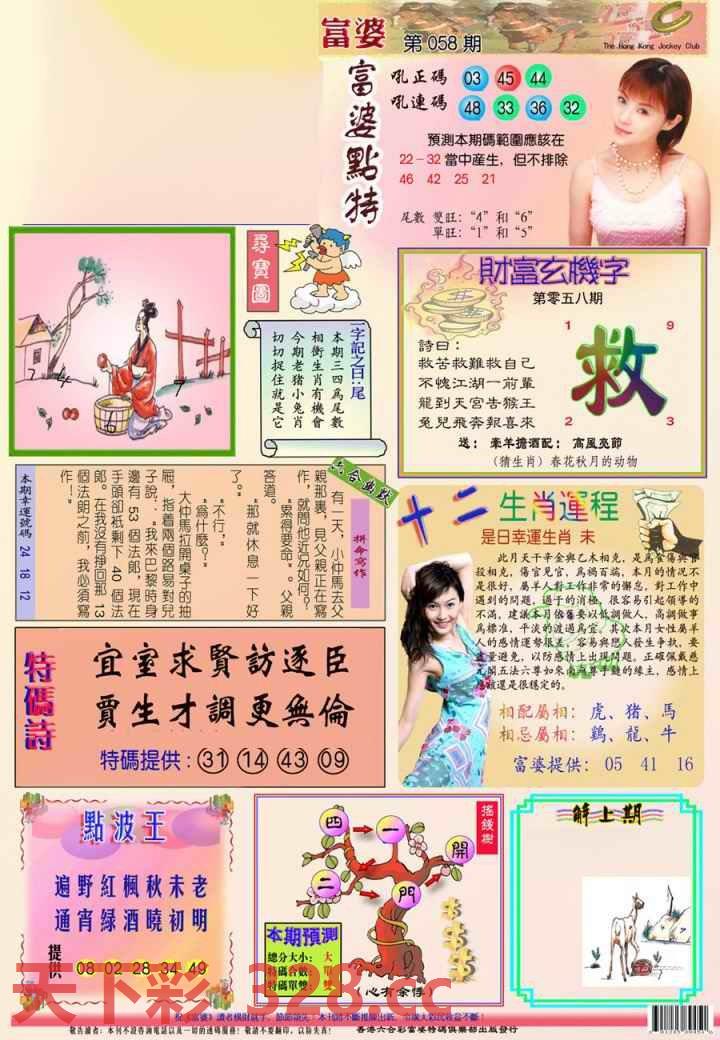 富婆
第058期
The Hong Kong Jockey Club
富婆點特
吼正碼 03 45 44
吼連碼 48 33 36 32
預測本期碼範圍應該在
22-32當中産生，但不排除
46 42 25 21
尾數 雙旺："4"和"6"
單旺："1"和"5"
尋寶圖
一字記之曰:尾
本期三四為尾數
相衝生肖有機會
今期老猪小兔肖
切切捉住就是它
財富玄機字
第零五八期
詩曰：
救苦救難救自己
不愧江湖一前輩
龍到天宮告猴王
兔兒飛奔報喜來
1 9
救
2 3
送：牽羊擔酒配：高風亮節
（猜生肖）春花秋月的动物
六合幽默
拼命寫作
有一天，小仲馬去父
親那裏，見父親正在寫
作，就問他近况如何？
"累得要命"。父親
答道。
"那就休息一下好
了。"
"不行，"
"爲什麼？"
大仲馬拉開桌子的抽
屜，指着兩個路易對兒
子說："我來巴黎時身
邊有 53 個法郎，現在
手頭却衹剩下 40 個法
郎。在我没有掙回那 13
個法郎之前，我必須寫
作！"
本期幸運號碼 24 18 12
十二生肖運程
是日幸運生肖 未
此月天干辛金與乙木相克，是爲食傷與官
殺相克，傷官見官，爲禍百端，本月的情况不
是很好，屬羊人對工作非常的懈怠，對工作中
遇到的問題，過于的消極，很容易引起領導的
不滿，建議本月依舊要以低調做人，高調做事
爲標准，平淡的渡過爲宜。其次本月女性屬羊
人的感情運勢很差，容易與戀人發生争執，要
盡量避免，以防感情上出現問題。正確佩戴慈
元閣五法六尊如來南無尊手鏈的緣主，感情上
應該還是很穩定的。
相配屬相：虎、猪、馬
相忌屬相：鷄、龍、牛
富婆提供：05 41 16
特碼詩
宜室求賢訪逐臣
賈生才調更無倫
特碼提供：31 14 43 09
點波王
遍野紅楓秋未老
通宵緑酒曉初明
提供 08 02 28 34 49
搖錢樹
四 一 開
二 門
本期預測
總分大小：大
特碼合數：單
特碼單雙：雙
(心有余悸)
解上期
天下彩 328.cc
敬告讀者：本刊不設咨詢電話以及一切的透碼服務！敬請不要翻印，以防失真！ 香港六合彩富婆特碼俱樂部出版發行